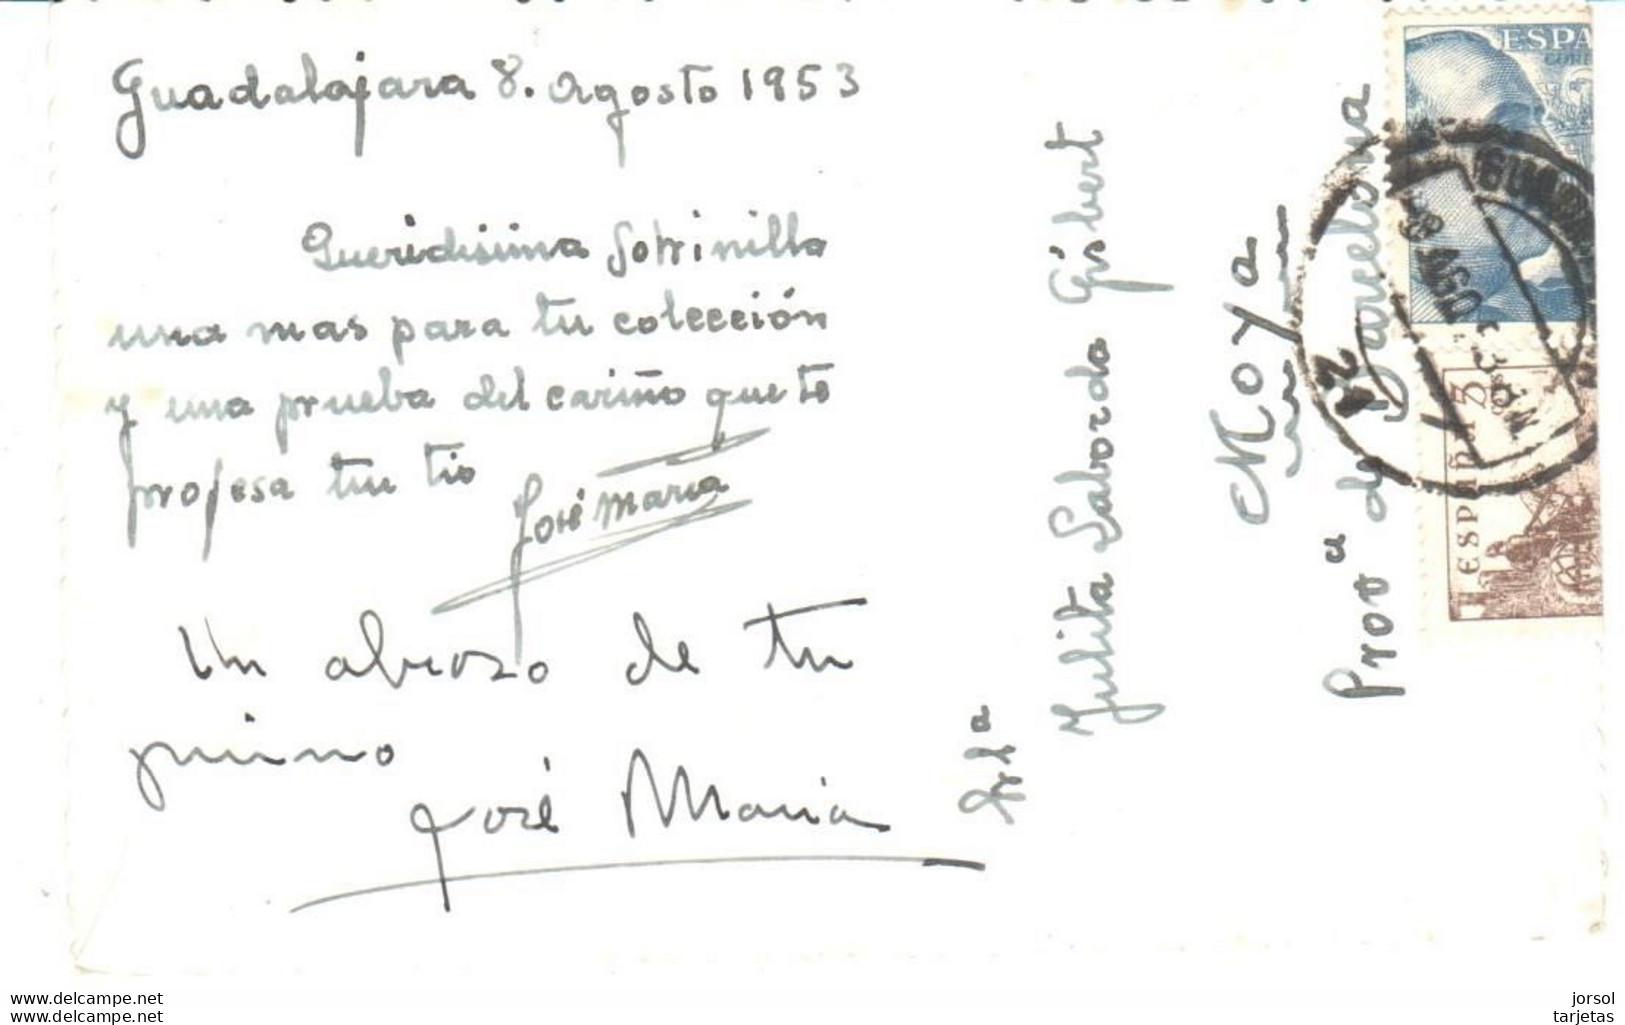 Guadalajara 8. Agosto 1953
Queridisima Sobrinilla
una mas para tu colección
y una prueba del cariño que te
profesa tu tio
José Maria
Un abrazo de tu
primo
José Maria
Srta
Julita Laborda Gisbert
Moya
Prova de Barcelona
ESPA
CORRE
ESPAÑA
5
www.delcampe.net
www.delcampe.net
jorsol
tarjetas